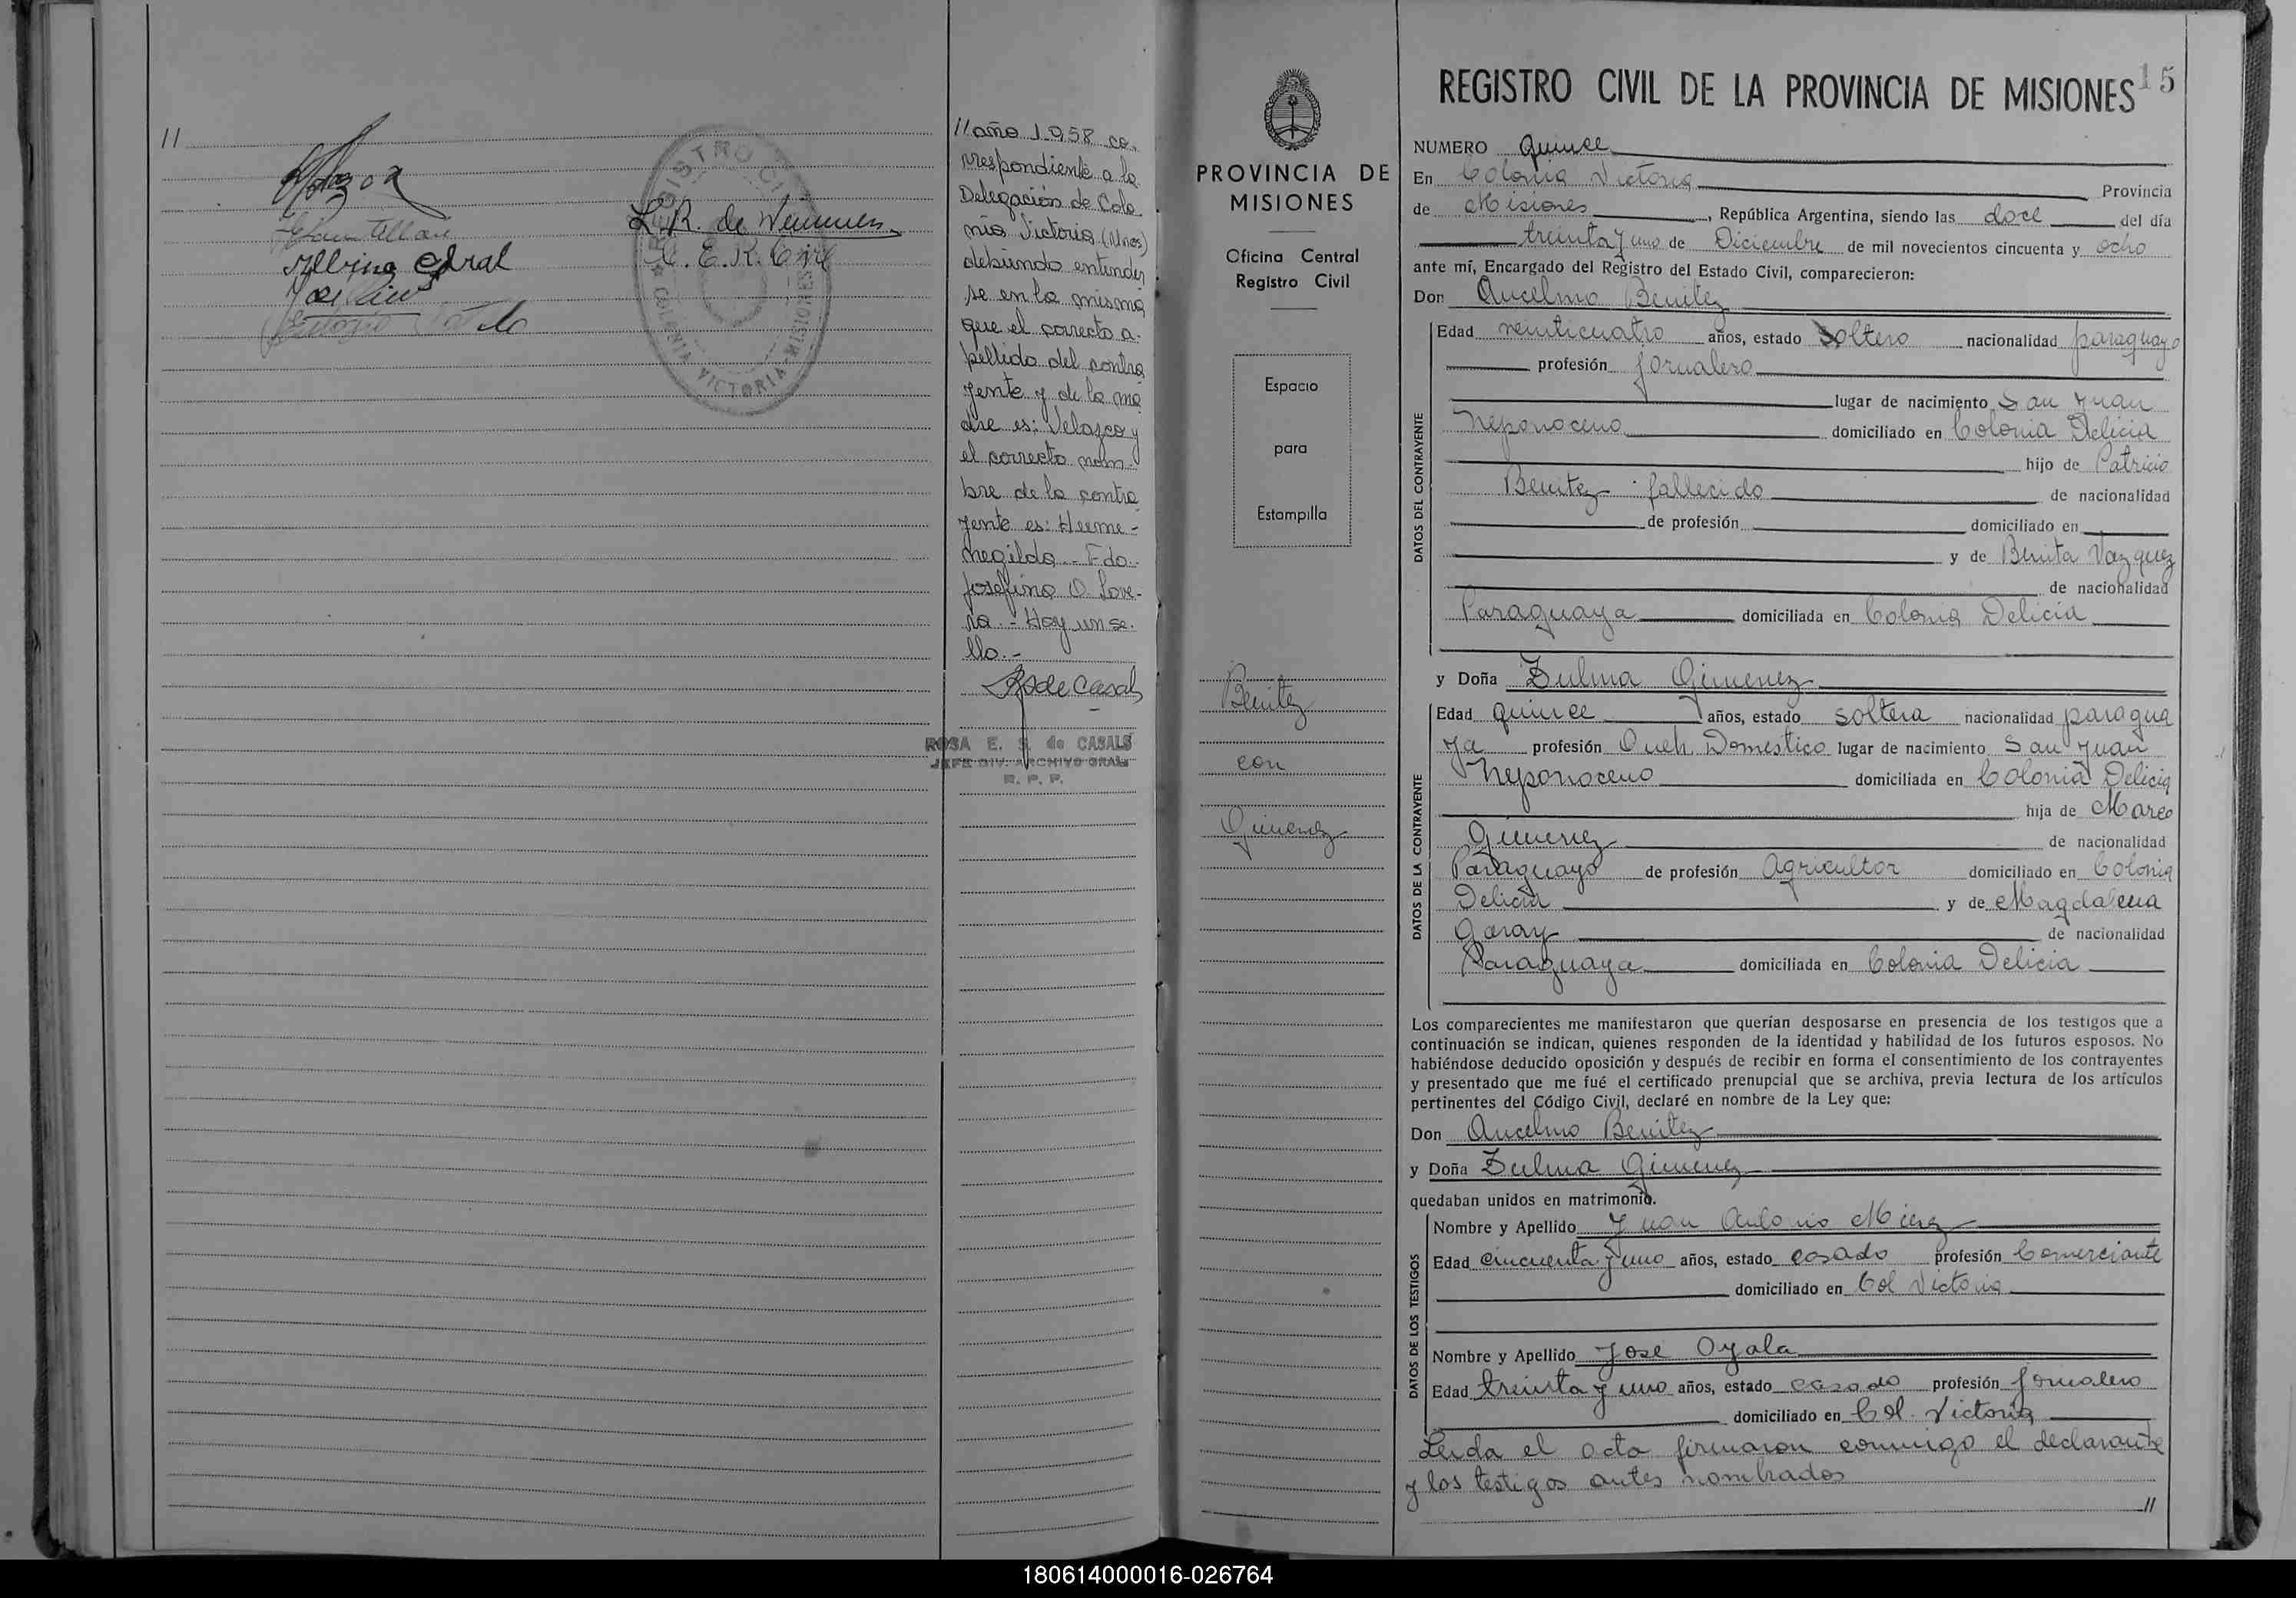 //
L. R. de
E. E. R. Civil
REGISTRO CIVIL
COLONIA VICTORIA - MISIONES
Albina
// año 1958 co-
rrespondiente a la
Delegación de Colo
nia Victoria (Mnes)
debiendo entender
se en la misma
que el correcto a-
pellido del contra
yente y de la ma
dre es: Velazco y
el correcto nom-
bre de la contra
yente es: Herme-
negilda.- Fdo.
Josefina O. Love-
ra.- Hay un se-
llo.-
de Casals
ROSA E. S. de CASALS
JEFE DIV. ARCHIVO GRAL
R. P. P.
PROVINCIA DE
MISIONES
Oficina Central
Registro Civil
Espacio
para
Estampilla
Benitez
con
Gimenez
REGISTRO CIVIL DE LA PROVINCIA DE MISIONES 15
NUMERO Quince
En Colonia Victoria Provincia
de Misiones, República Argentina, siendo las doce del día
treinta y uno de Diciembre de mil novecientos cincuenta y ocho
ante mí, Encargado del Registro del Estado Civil, comparecieron:
Don Ancelmo Benitez
DATOS DEL CONTRAYENTE
Edad veinticuatro años, estado Soltero nacionalidad paraguayo
profesión Jornalero
lugar de nacimiento San Juan
Neponoceno domiciliado en Colonia Delicia
hijo de Patricio
Benitez fallecido de nacionalidad
de profesión domiciliado en
y de Benita Vazquez
de nacionalidad
Paraguaya domiciliada en Colonia Delicia
y Doña Zulma Gimenez
DATOS DE LA CONTRAYENTE
Edad quince años, estado soltera nacionalidad paragua
ya profesión Queh. Domestico lugar de nacimiento San Juan
Neponoceno domiciliada en Colonia Delicia
hija de Marco
Gimenez de nacionalidad
Paraguayo de profesión Agricultor domiciliado en Colonia
Delicia y de Magdalena
Garay de nacionalidad
Paraguaya domiciliada en Colonia Delicia
Los comparecientes me manifestaron que querían desposarse en presencia de los testigos que a
continuación se indican, quienes responden de la identidad y habilidad de los futuros esposos. No
habiéndose deducido oposición y después de recibir en forma el consentimiento de los contrayentes
y presentado que me fué el certificado prenupcial que se archiva, previa lectura de los artículos
pertinentes del Código Civil, declaré en nombre de la Ley que:
Don Ancelmo Benitez
y Doña Zulma Gimenez
quedaban unidos en matrimonio.
DATOS DE LOS TESTIGOS
Nombre y Apellido Juan Antonio
Edad cincuenta y uno años, estado casado profesión Comerciante
domiciliado en Col Victoria
Nombre y Apellido Jose Oyala
Edad treinta y uno años, estado casado profesión Jornalero
domiciliado en Col. Victoria
Leida el acta firmaron conmigo el declarante
y los testigos antes nombrados
//
180614000016-026764